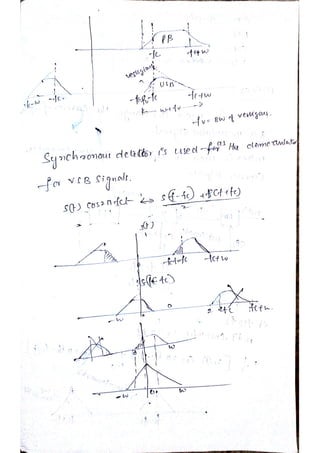 PB
fc
fc+w
vestigial
VSB
-fc-w
-fc
fc-fv
fc
fc+w
w+fv
fv = BW of vestigial.
Synchronous detector is used for as the demodulator
for VSB signals.
s(t) cos2πfct ↔ s(f-fc)+s(f+fc)
2
s(f)
fc
fc+w
s(f-fc)
-w
0
2fc
w
-w
w